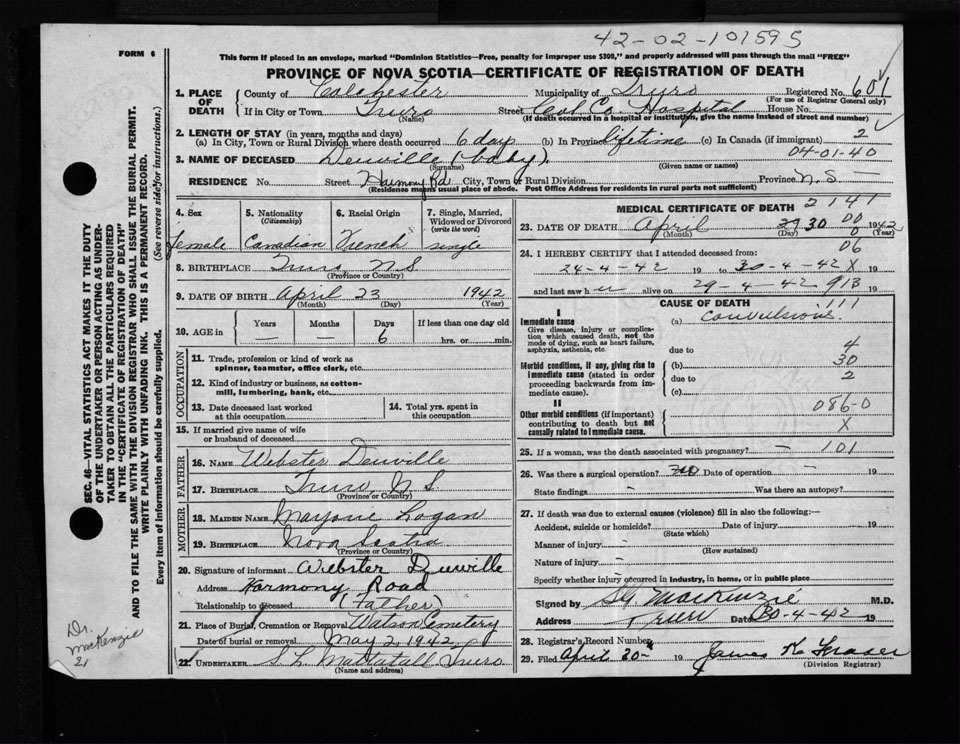 42-02-101595
FORM 6
This form if placed in an envelope, marked "Dominion Statistics—Free, penalty for improper use $300," and properly addressed will pass through the mail "FREE"
PROVINCE OF NOVA SCOTIA—CERTIFICATE OF REGISTRATION OF DEATH
1. PLACE OF DEATH County of Colchester Municipality of Truro Registered No. 601
(For use of Registrar General only)
If in City or Town Truro Street Col. Co. Hospital House No.
(Name) (If death occurred in a hospital or institution, give the name instead of street and number)
2. LENGTH OF STAY (in years, months and days) 2
(a) In City, Town or Rural Division where death occurred 6 days (b) In Province lifetime (c) In Canada (if immigrant)
04-01-40
3. NAME OF DECEASED Deuville (baby).
(Surname) (Given name or names)
RESIDENCE No. Street Harmony Rd City, Town or Rural Division Province N.S. —
(Residence means usual place of abode. Post Office Address for residents in rural parts not sufficient)
4. Sex 5. Nationality (Citizenship) 6. Racial Origin 7. Single, Married, Widowed or Divorced (write the word)
female Canadian French single
8. BIRTHPLACE Truro N S
(Province or Country)
9. DATE OF BIRTH April 23 1942
(Month) (Day) (Year)
10. AGE in Years Months Days If less than one day old
— — 6 hrs. or min.
OCCUPATION
11. Trade, profession or kind of work as spinner, teamster, office clerk, etc.
12. Kind of industry or business, as cotton-mill, lumbering, bank, etc.
13. Date deceased last worked at this occupation
14. Total yrs. spent in this occupation
15. If married give name of wife or husband of deceased
FATHER
16. NAME Webster Deuville
17. BIRTHPLACE Truro N S.
(Province or Country)
MOTHER
18. MAIDEN NAME Marjorie Logan
19. BIRTHPLACE Nova Scotia
(Province or Country)
20. Signature of informant Webster Deuville
Address Harmony Road
Relationship to deceased (Father)
21. Place of Burial, Cremation or Removal Watson Cemetery
Date of burial or removal May 2 1942
22. UNDERTAKER S. L. Mattatall Truro
(Name and address)
2141
MEDICAL CERTIFICATE OF DEATH
00
23. DATE OF DEATH April 30 0 1942
(Month) (Day) (Year)
06
24. I HEREBY CERTIFY that I attended deceased from:
24-4-42 19 to 30-4-42 X 19
and last saw her alive on 29-4-42 913 19
CAUSE OF DEATH
111
I
Immediate cause (a) Convulsions.
Give disease, injury or complication which caused death, not the mode of dying, such as heart failure, asphyxia, asthenia, etc.
due to 4
Morbid conditions, if any, giving rise to immediate cause (stated in order proceeding backwards from immediate cause).
(b) 30
due to 2
(c)
II 086-0
Other morbid conditions (if important) contributing to death but not causally related to immediate cause. X
25. If a woman, was the death associated with pregnancy? — 101
26. Was there a surgical operation? no Date of operation — 19
State findings — Was there an autopsy?
27. If death was due to external causes (violence) fill in also the following:—
Accident, suicide or homicide? Date of injury 19
(State which)
Manner of injury —
(How sustained)
Nature of injury —
Specify whether injury occurred in industry, in home, or in public place
Signed by S G MacKenzie M.D.
Address Truro Date 30-4-42 19
28. Registrar's Record Number
29. Filed April 30th 19 James K Fraser
(Division Registrar)
SEC. 46—VITAL STATISTICS ACT MAKES IT THE DUTY
OF THE UNDERTAKER OR PERSON ACTING AS UNDER-
TAKER TO OBTAIN ALL THE PARTICULARS REQUIRED
IN THE "CERTIFICATE OF REGISTRATION OF DEATH"
AND TO FILE THE SAME WITH THE DIVISION REGISTRAR WHO SHALL ISSUE THE BURIAL PERMIT.
WRITE PLAINLY WITH UNFADING INK. THIS IS A PERMANENT RECORD.
Every item of information should be carefully supplied. (See reverse side for instructions.)
Dr.
MacKenzie
21